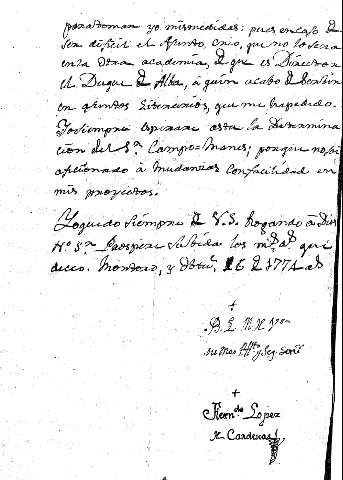 para tomar yo mis medidas: pues en caso de
ser dificil el asunto, creo, que no lo sera
en la otra academia, de que es Director
el Duque de Alba, à quien acabo de servir
en asuntos literarios, que me ha pedido.
Yo siempre esperare asta la determina
cion del Sr. Campo=Manes; porque no soi
aficionado à mudanzas con facilidad en
mis proyectos.
Yo quedo siempre de V.S. Rogando à Dios
N.º Sr. Prospere su vida los ms. as. que
deseo. Montoro, y Obtue. 16 de 1774 as
B. L. M.
su mas Atto. y Seg. Servr.
Ferndo. Lopez
de Cardenas